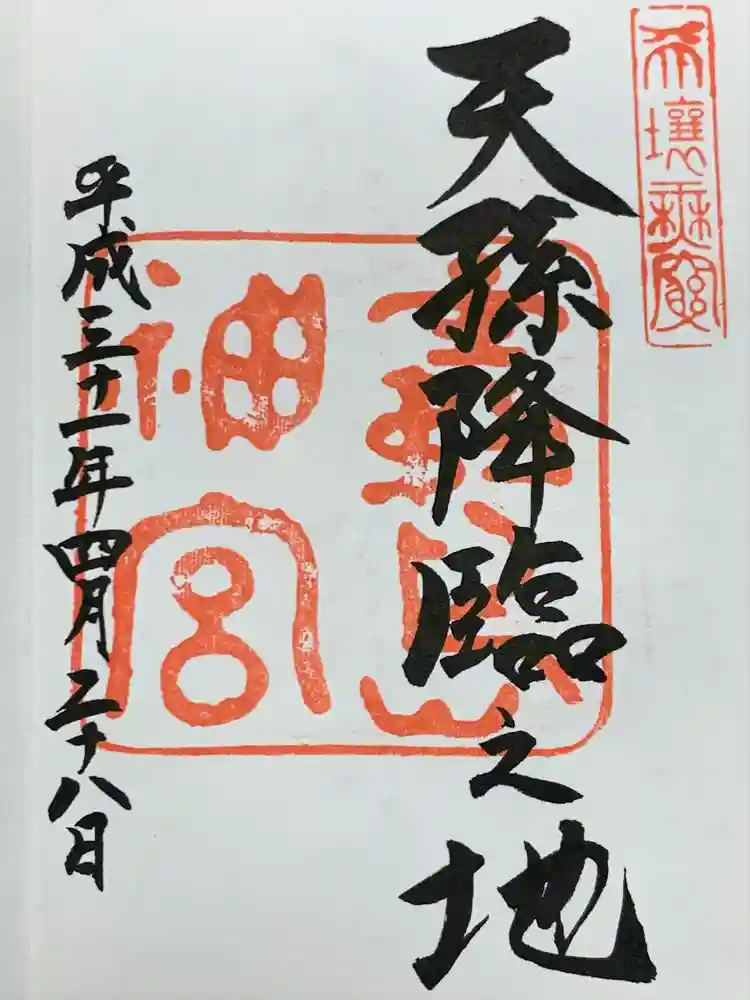 天壤無窮
天孫降臨之地
霧島
神宮
平成三十一年四月二十八日